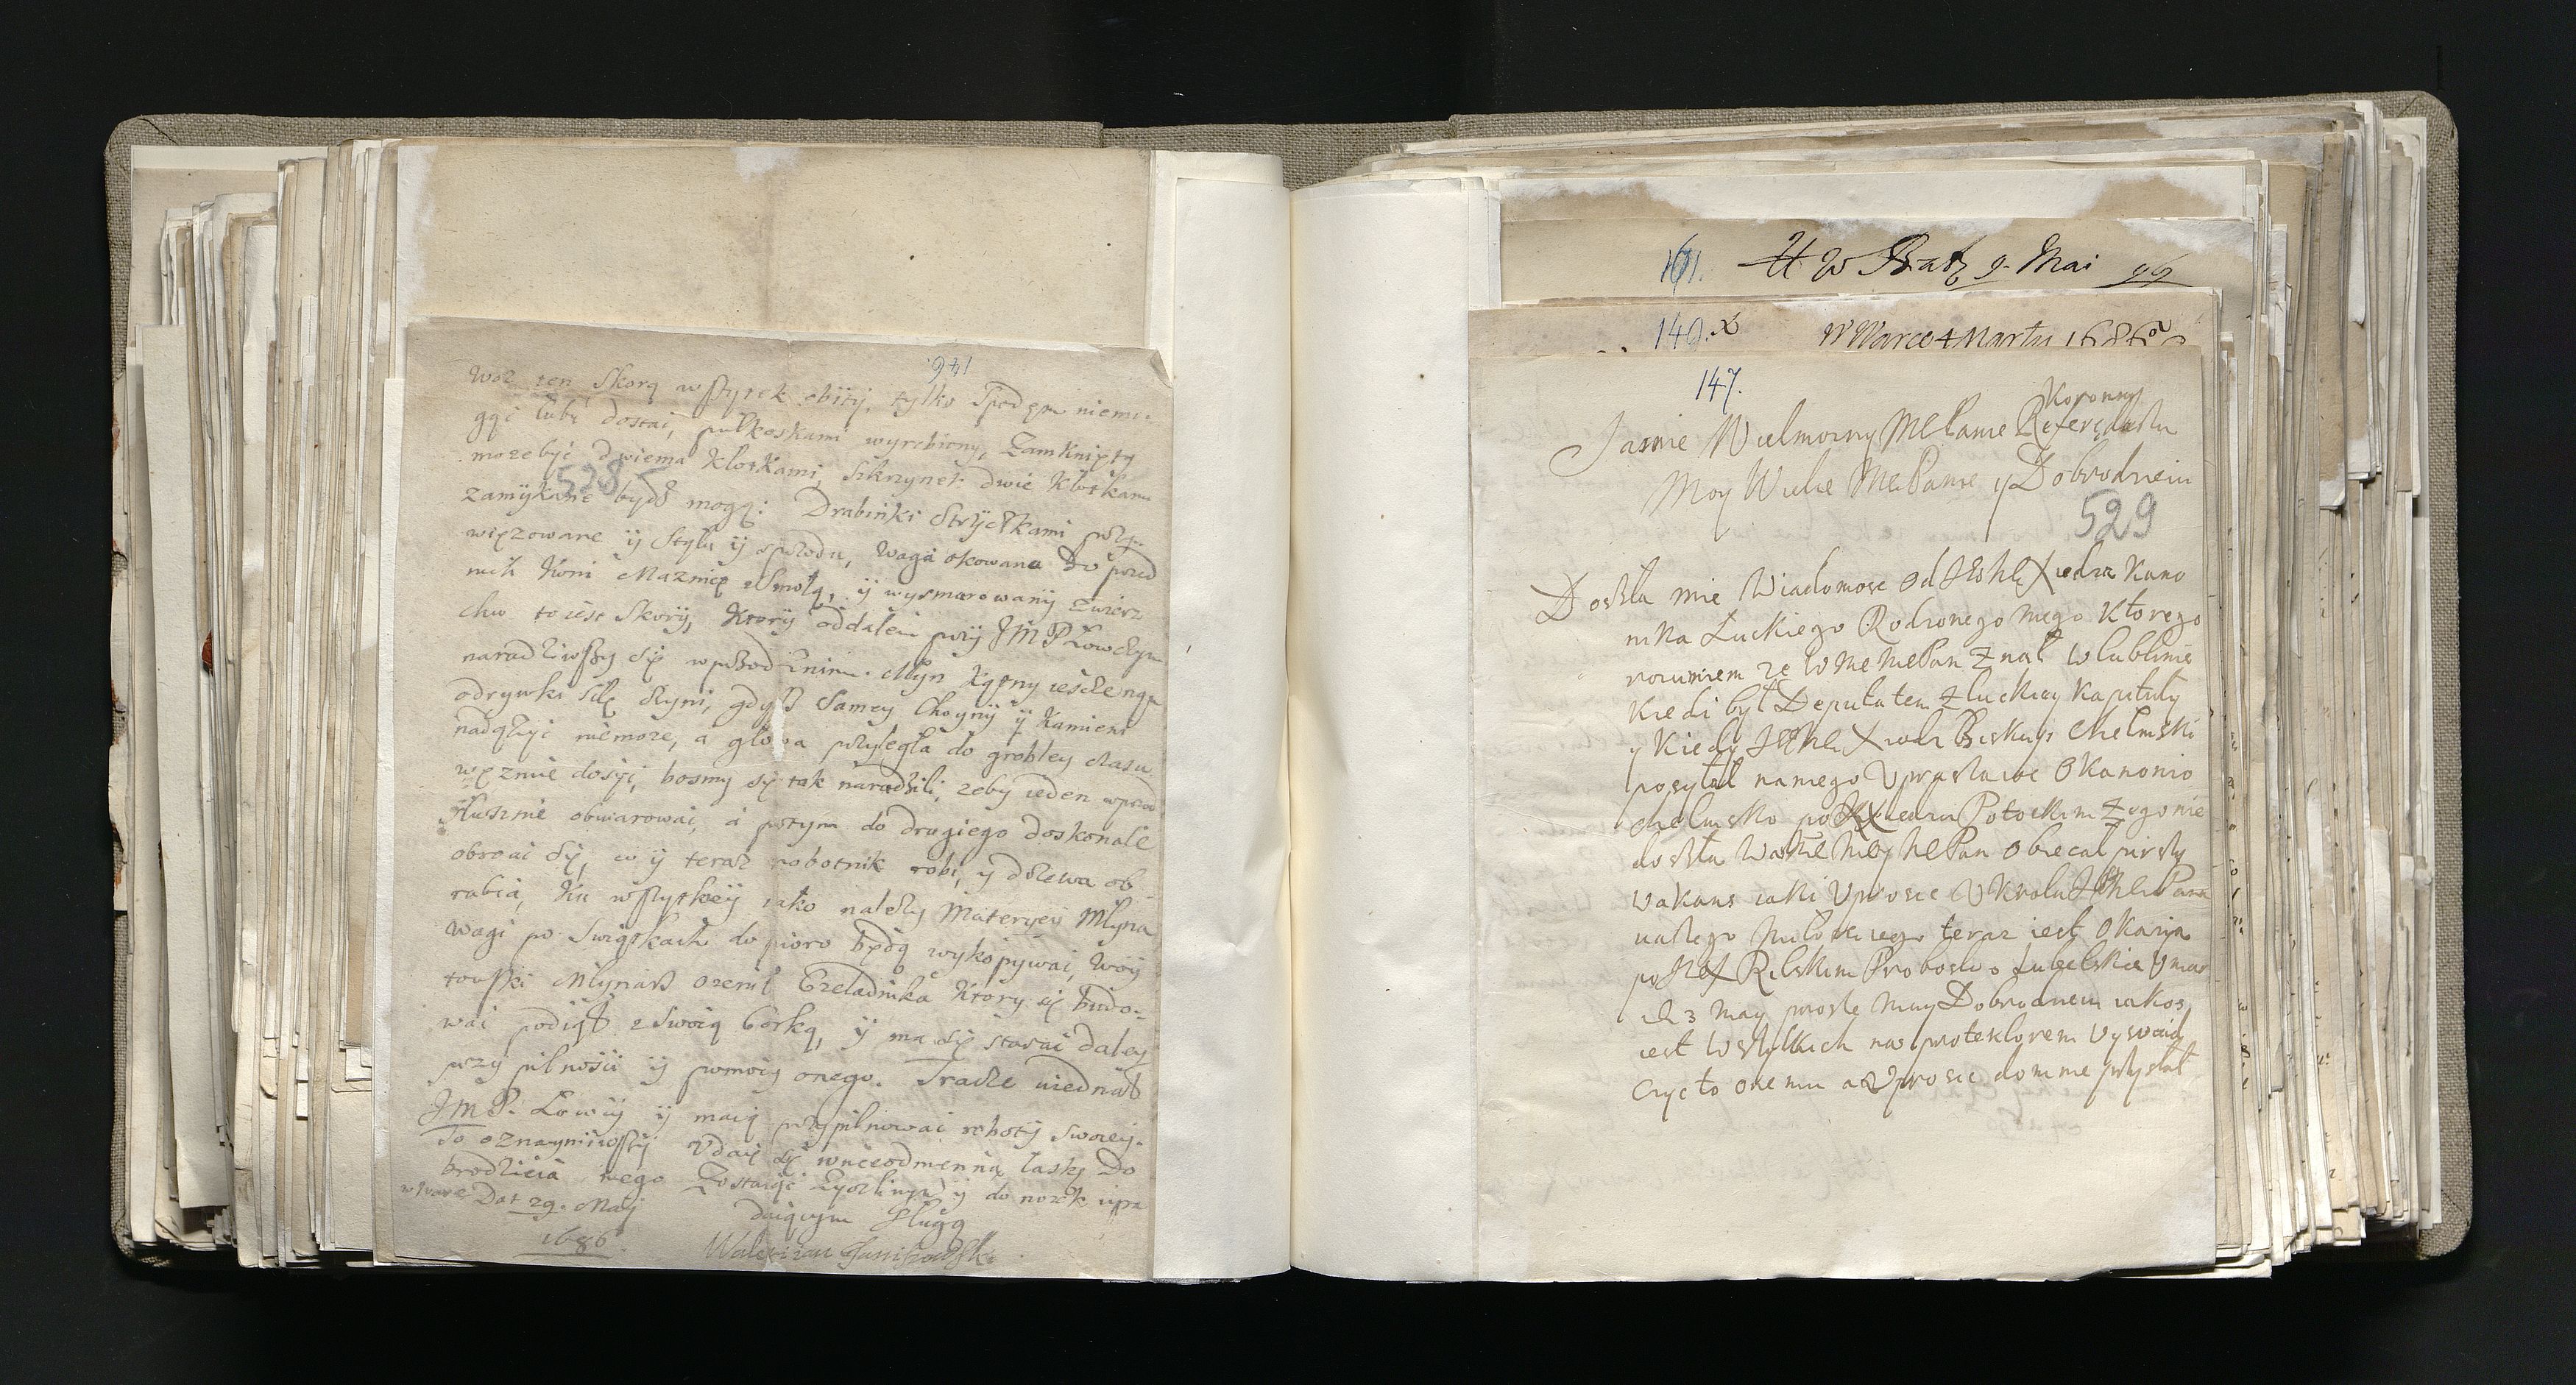 146
Woz ten skorą wszytek obity, tylko spodem niemo-
gąc lubu dostać, pułkoskami wyrobiony, Zamknięty
może być dwiema klotkami, skrzynek dwie klotkami
528
zamykane bydź mogą: Drabinki Stryczkami przy-
więzowane y styłu y zprzodu, waga okowana do przed
nich koni Maznicę z Smołą, y wysmarowany zwierz
chu to iest skory, ktory oddałem przy JMP Łowczym
naradziwszy się wprzod z nim. Młyn Kępny ieszcze
odrywki się czyni, gdysz samey Choyny y Kamieni
nadążyć niemoze, a głowa przyległa do grobley czasu
weznie dosyć, bosmy się tak naradzili, zeby ieden wprzod
słusznie obwarować, a potym do drugiego doskonale
obrać się, co y teraz robotnik robi, y drzewa ob
rabia, ku wszytkiey iako należy Materyey Młyna
wagi po Swiątkach do pioro będą wykopywać, Woy
towski Młynarz ozenił Czeladnika ktory się budo-
wać podiął z Swoią Corką, y ma się starać daley
przy pilności y pomocy onego. Tracze uiednał
JMP. Łowczy y maią przypilnować roboty swoiey.
To oznaymiwszy Vdaię się wnieodmienną łaskę Do
brodzieia mego Zostaiąc Zyczliwym y do nozek upa
w Warce Dat 29. Maij
daiącym sługą
1686.
Walerian
161. W 9. Mai 86
140. x W Warce 4 Martij 1686
147.
Koronny
Jasnie Wielmozny MCPanie Referędarzu
Moy Wielce MciPanie y Dobrodzieiu
529
Doszła mie Wiadomosc od JEMCi Xiedza Kano
nika Łuckiego Rodzonego mego ktorego
rozumiem ze WMC MCPan znał w lublinie
kiedi był Deputatem z łuckiey kapituły
y kiedy JEMCi Xiądz Biskup Chełmski
posyłał namego Vpraszaiąc o kanonio
chełmsko po Xiedzu Potockim z tego nie
doszła WaszeMc MCPan obiecał pirszy
wakans iaki Vprosic V Krola JEMCi Pana
naszego Miłosciwego teraz iest okazyja
po Rilskim Probostwo Lubelskie Vmar
3 may prosze muy Dobrodzieiu iakos
iest wszytkich nas protektorem
czyc to onemu a Vprosic do mnie przysłał